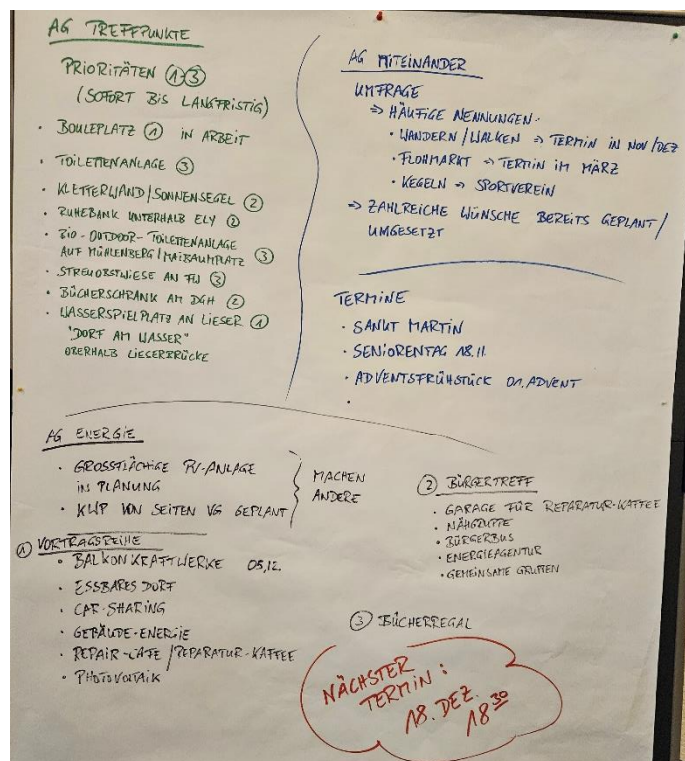 AG TREFFPUNKTE
PRIORITÄTEN ①-③
(SOFORT BIS LANGFRISTIG)
• BOULEPLATZ ① IN ARBEIT
• TOILETTENANLAGE ③
• KLETTERWAND/SONNENSEGEL ②
• RUHEBANK UNTERHALB ELY ②
• BIO-OUTDOOR-TOILETTENANLAGE
AUF MÜHLENBERG/MAIBAUMPLATZ ③
• STREUOBSTWIESE AN FW ③
• BÜCHERSCHRANK AM DGH ②
• WASSERSPIELPLATZ AN LIESER ①
"DORF AM WASSER"
OBERHALB LIESERBRÜCKE
AG MITEINANDER
UMFRAGE
⇒ HÄUFIGE NENNUNGEN:
• WANDERN/WALKEN ⇒ TERMIN IN NOV/DEZ
• FLOHMARKT ⇒ TERMIN IM MÄRZ
• KEGELN ⇒ SPORTVEREIN
⇒ ZAHLREICHE WÜNSCHE BEREITS GEPLANT/
UMGESETZT
TERMINE
• SANKT MARTIN
• SENIORENTAG 18.11.
• ADVENTSFRÜHSTÜCK 01. ADVENT
•
AG ENERGIE
• GROSSFLÄCHIGE PV-ANLAGE
IN PLANUNG
• KWP VON SEITEN VG GEPLANT
MACHEN
ANDERE
① VORTRAGSREIHE
• BALKONKRAFTWERKE 05.12.
• ESSBARES DORF
• CAR-SHARING
• GEBÄUDE-ENERGIE
• REPAIR-CAFE/REPARATUR-KAFFEE
• PHOTOVOLTAIK
② BÜRGERTREFF
• GARAGE FÜR REPARATUR-KAFFEE
• NÄHGRUPPE
• BÜRGERBUS
• ENERGIEAGENTUR
• GEMEINSAME GRUPPEN
③ BÜCHERREGAL
NÄCHSTER
TERMIN:
18. DEZ.
18³⁰